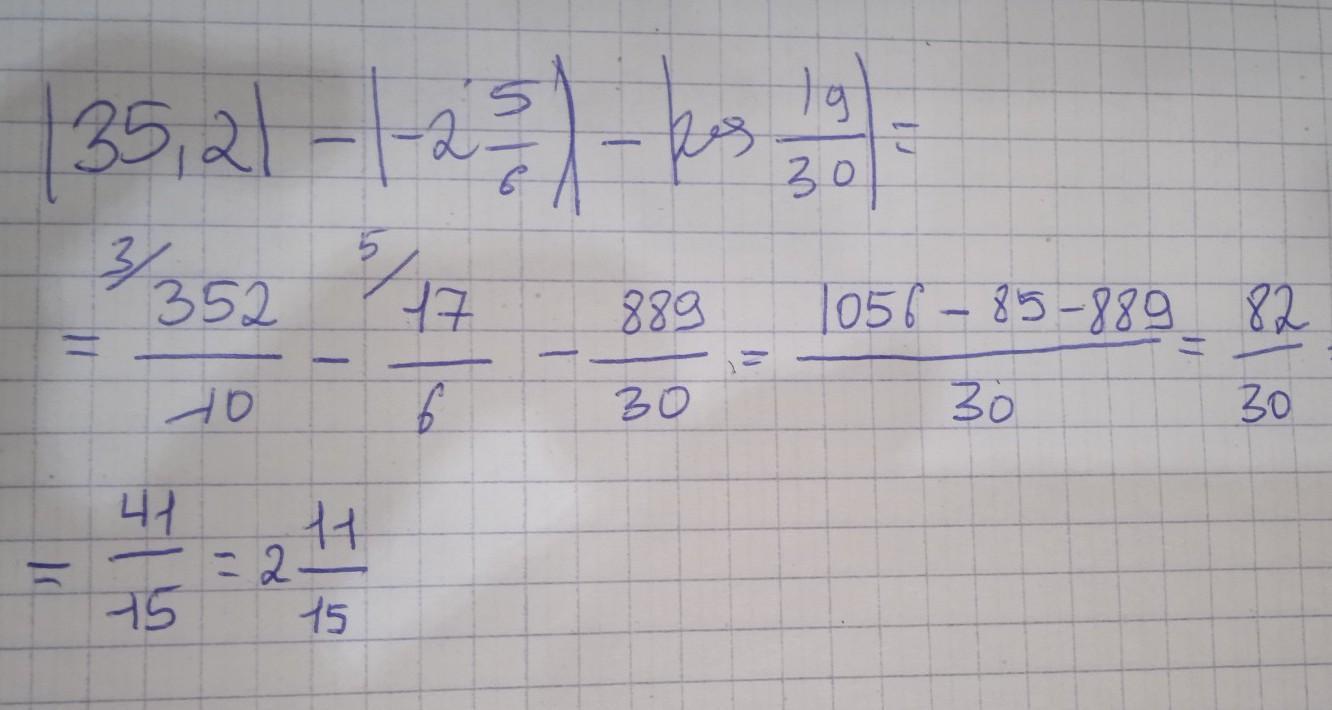 |35,2| - |-2 5/6| - |29 19/30| =
= 3/ 352/10 - 5/ 17/6 - 889/30 = (1056 - 85 - 889)/30 = 82/30 =
= 41/15 = 2 11/15